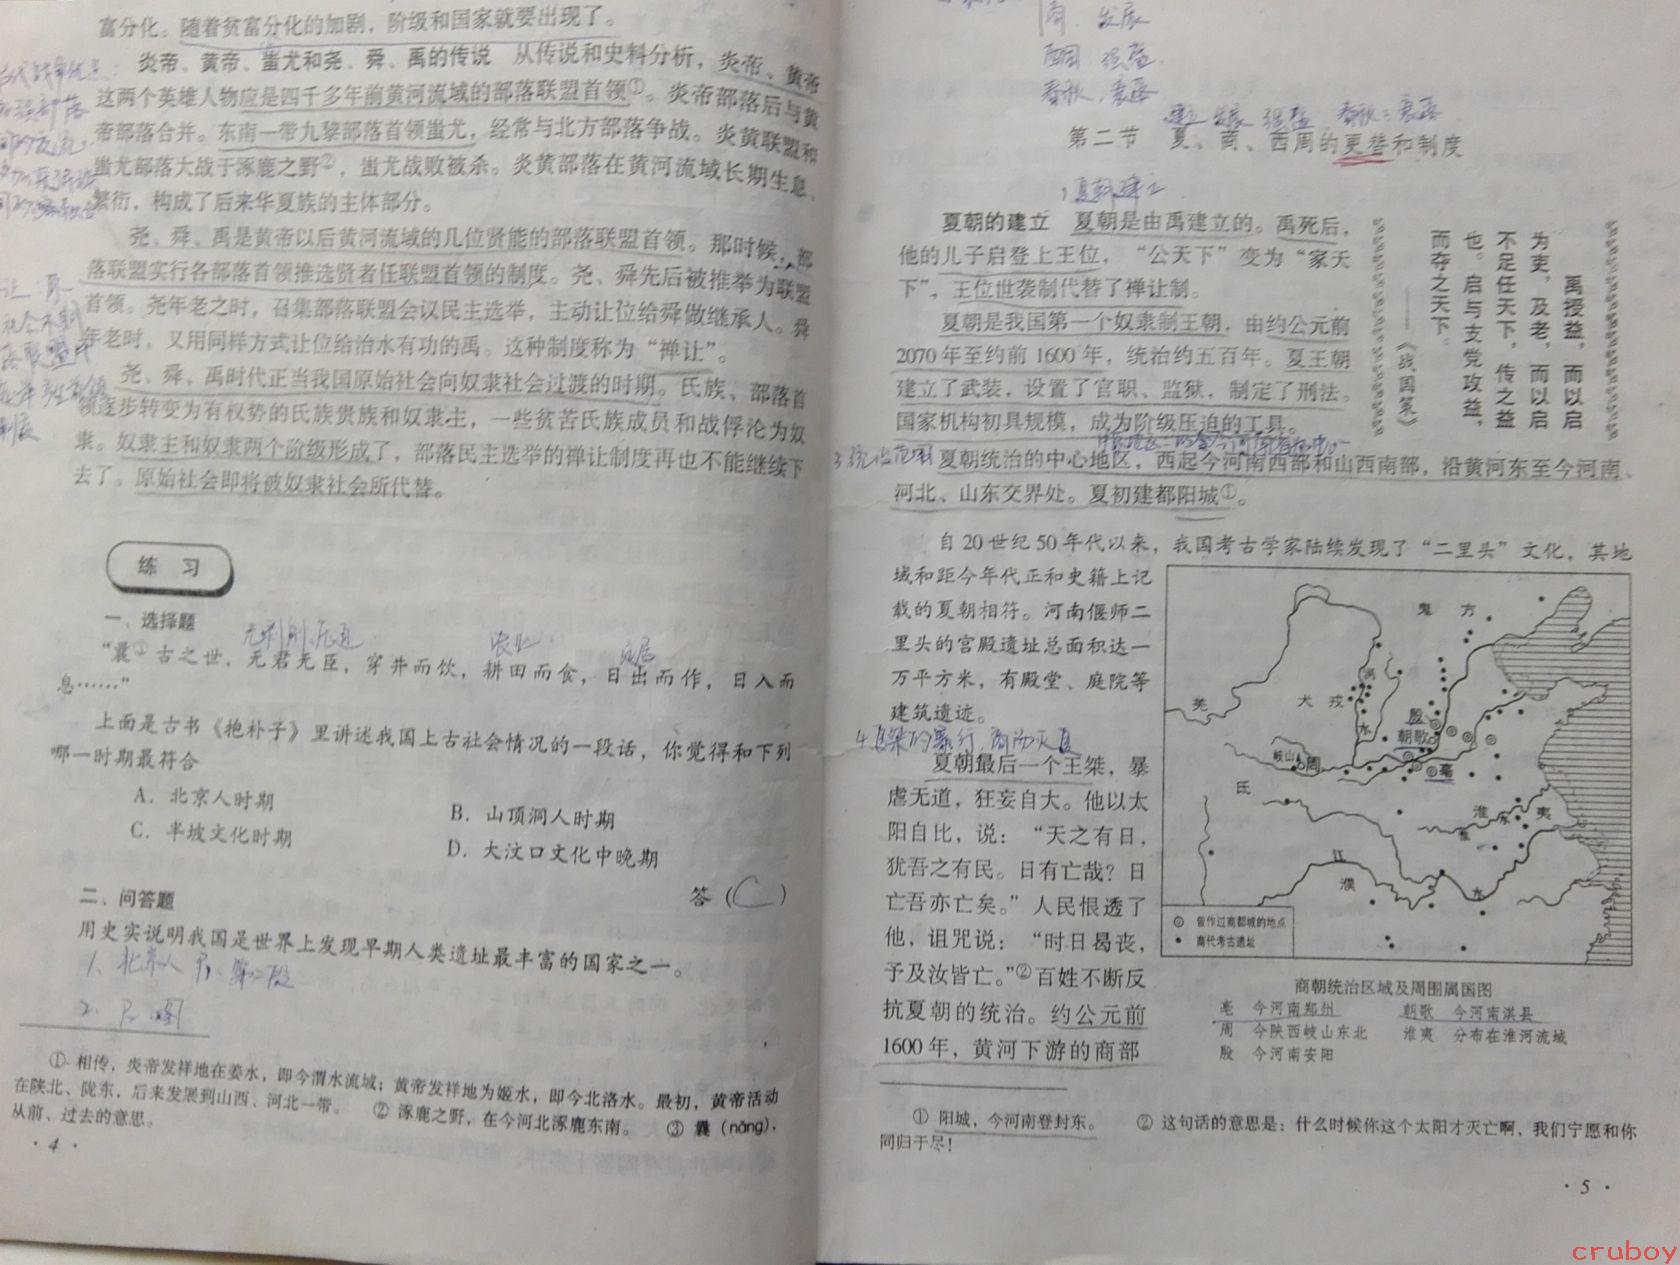 富分化。随着贫富分化的加剧，阶级和国家就要出现了。
炎帝、黄帝、蚩尤和尧、舜、禹的传说　从传说和史料分析，炎帝、黄帝
这两个英雄人物应是四千多年前黄河流域的部落联盟首领①。炎帝部落后与黄
帝部落合并。东南一带九黎部落首领蚩尤，经常与北方部落争战。炎黄联盟和
蚩尤部落大战于涿鹿之野②，蚩尤战败被杀。炎黄部落在黄河流域长期生息、
繁衍，构成了后来华夏族的主体部分。
尧、舜、禹是黄帝以后黄河流域的几位贤能的部落联盟首领。那时候，部
落联盟实行各部落首领推选贤者任联盟首领的制度。尧、舜先后被推举为联盟
首领。尧年老之时，召集部落联盟会议民主选举，主动让位给舜做继承人。舜
年老时，又用同样方式让位给治水有功的禹。这种制度称为“禅让”。
尧、舜、禹时代正当我国原始社会向奴隶社会过渡的时期。氏族、部落首
领逐步转变为有权势的氏族贵族和奴隶主，一些贫苦氏族成员和战俘沦为奴
隶。奴隶主和奴隶两个阶级形成了，部落民主选举的禅让制度再也不能继续下
去了。原始社会即将被奴隶社会所代替。
练 习
一、选择题
无剥削、压迫
农业
定居
“曩③古之世，无君无臣，穿井而饮，耕田而食，日出而作，日入而
息……”
上面是古书《抱朴子》里讲述我国上古社会情况的一段话，你觉得和下列
哪一时期最符合
A. 北京人时期
B. 山顶洞人时期
C. 半坡文化时期
D. 大汶口文化中晚期
答（C）
二、问答题
用史实说明我国是世界上发现早期人类遗址最丰富的国家之一。
1、北京人
2、
① 相传，炎帝发祥地在姜水，即今渭水流域；黄帝发祥地为姬水，即今北洛水。最初，黄帝活动
在陕北、陇东，后来发展到山西、河北一带。　② 涿鹿之野，在今河北涿鹿东南。　③ 曩（nǎng），
从前、过去的意思。
· 4 ·
商．发展
西周 强盛．
春秋．衰落
建立 发展 强盛 春秋：衰落
第二节　夏、商、西周的更替和制度
1夏朝建立
夏朝的建立　夏朝是由禹建立的。禹死后，
他的儿子启登上王位，“公天下”变为“家天
下”，王位世袭制代替了禅让制。
夏朝是我国第一个奴隶制王朝，由约公元前
2070年至约前1600年，统治约五百年。夏王朝
建立了武装，设置了官职、监狱，制定了刑法。
国家机构初具规模，成为阶级压迫的工具。
禹授益，而以启
为吏，及老，而以启
不足任天下，传之益
也。启与支党攻益，
而夺之天下。
——《战国策》
3统治范围
夏朝统治的中心地区，西起今河南西部和山西南部，沿黄河东至今河南、
河北、山东交界处。夏初建都阳城①。
自20世纪50年代以来，我国考古学家陆续发现了“二里头”文化，其地
域和距今年代正和史籍上记
载的夏朝相符。河南偃师二
里头的宫殿遗址总面积达一
万平方米，有殿堂、庭院等
建筑遗迹。
4.夏桀的暴行，商汤灭夏
夏朝最后一个王桀，暴
虐无道，狂妄自大。他以太
阳自比，说：“天之有日，
犹吾之有民。日有亡哉？日
亡吾亦亡矣。”人民恨透了
他，诅咒说：“时日曷丧，
予及汝皆亡。”②百姓不断反
抗夏朝的统治。约公元前
1600年，黄河下游的商部
鬼 方
羌
犬 戎
水
殷
朝歌
岐山
周
亳
氐
淮
夷
江
濮
水
曾作过商都城的地点
商代考古遗址
商朝统治区域及周围属国图
亳 今河南郑州　朝歌 今河南淇县
周 今陕西岐山东北　淮夷 分布在淮河流域
殷 今河南安阳
① 阳城，今河南登封东。　② 这句话的意思是：什么时候你这个太阳才灭亡啊，我们宁愿和你
同归于尽！
· 5 ·
cruboy